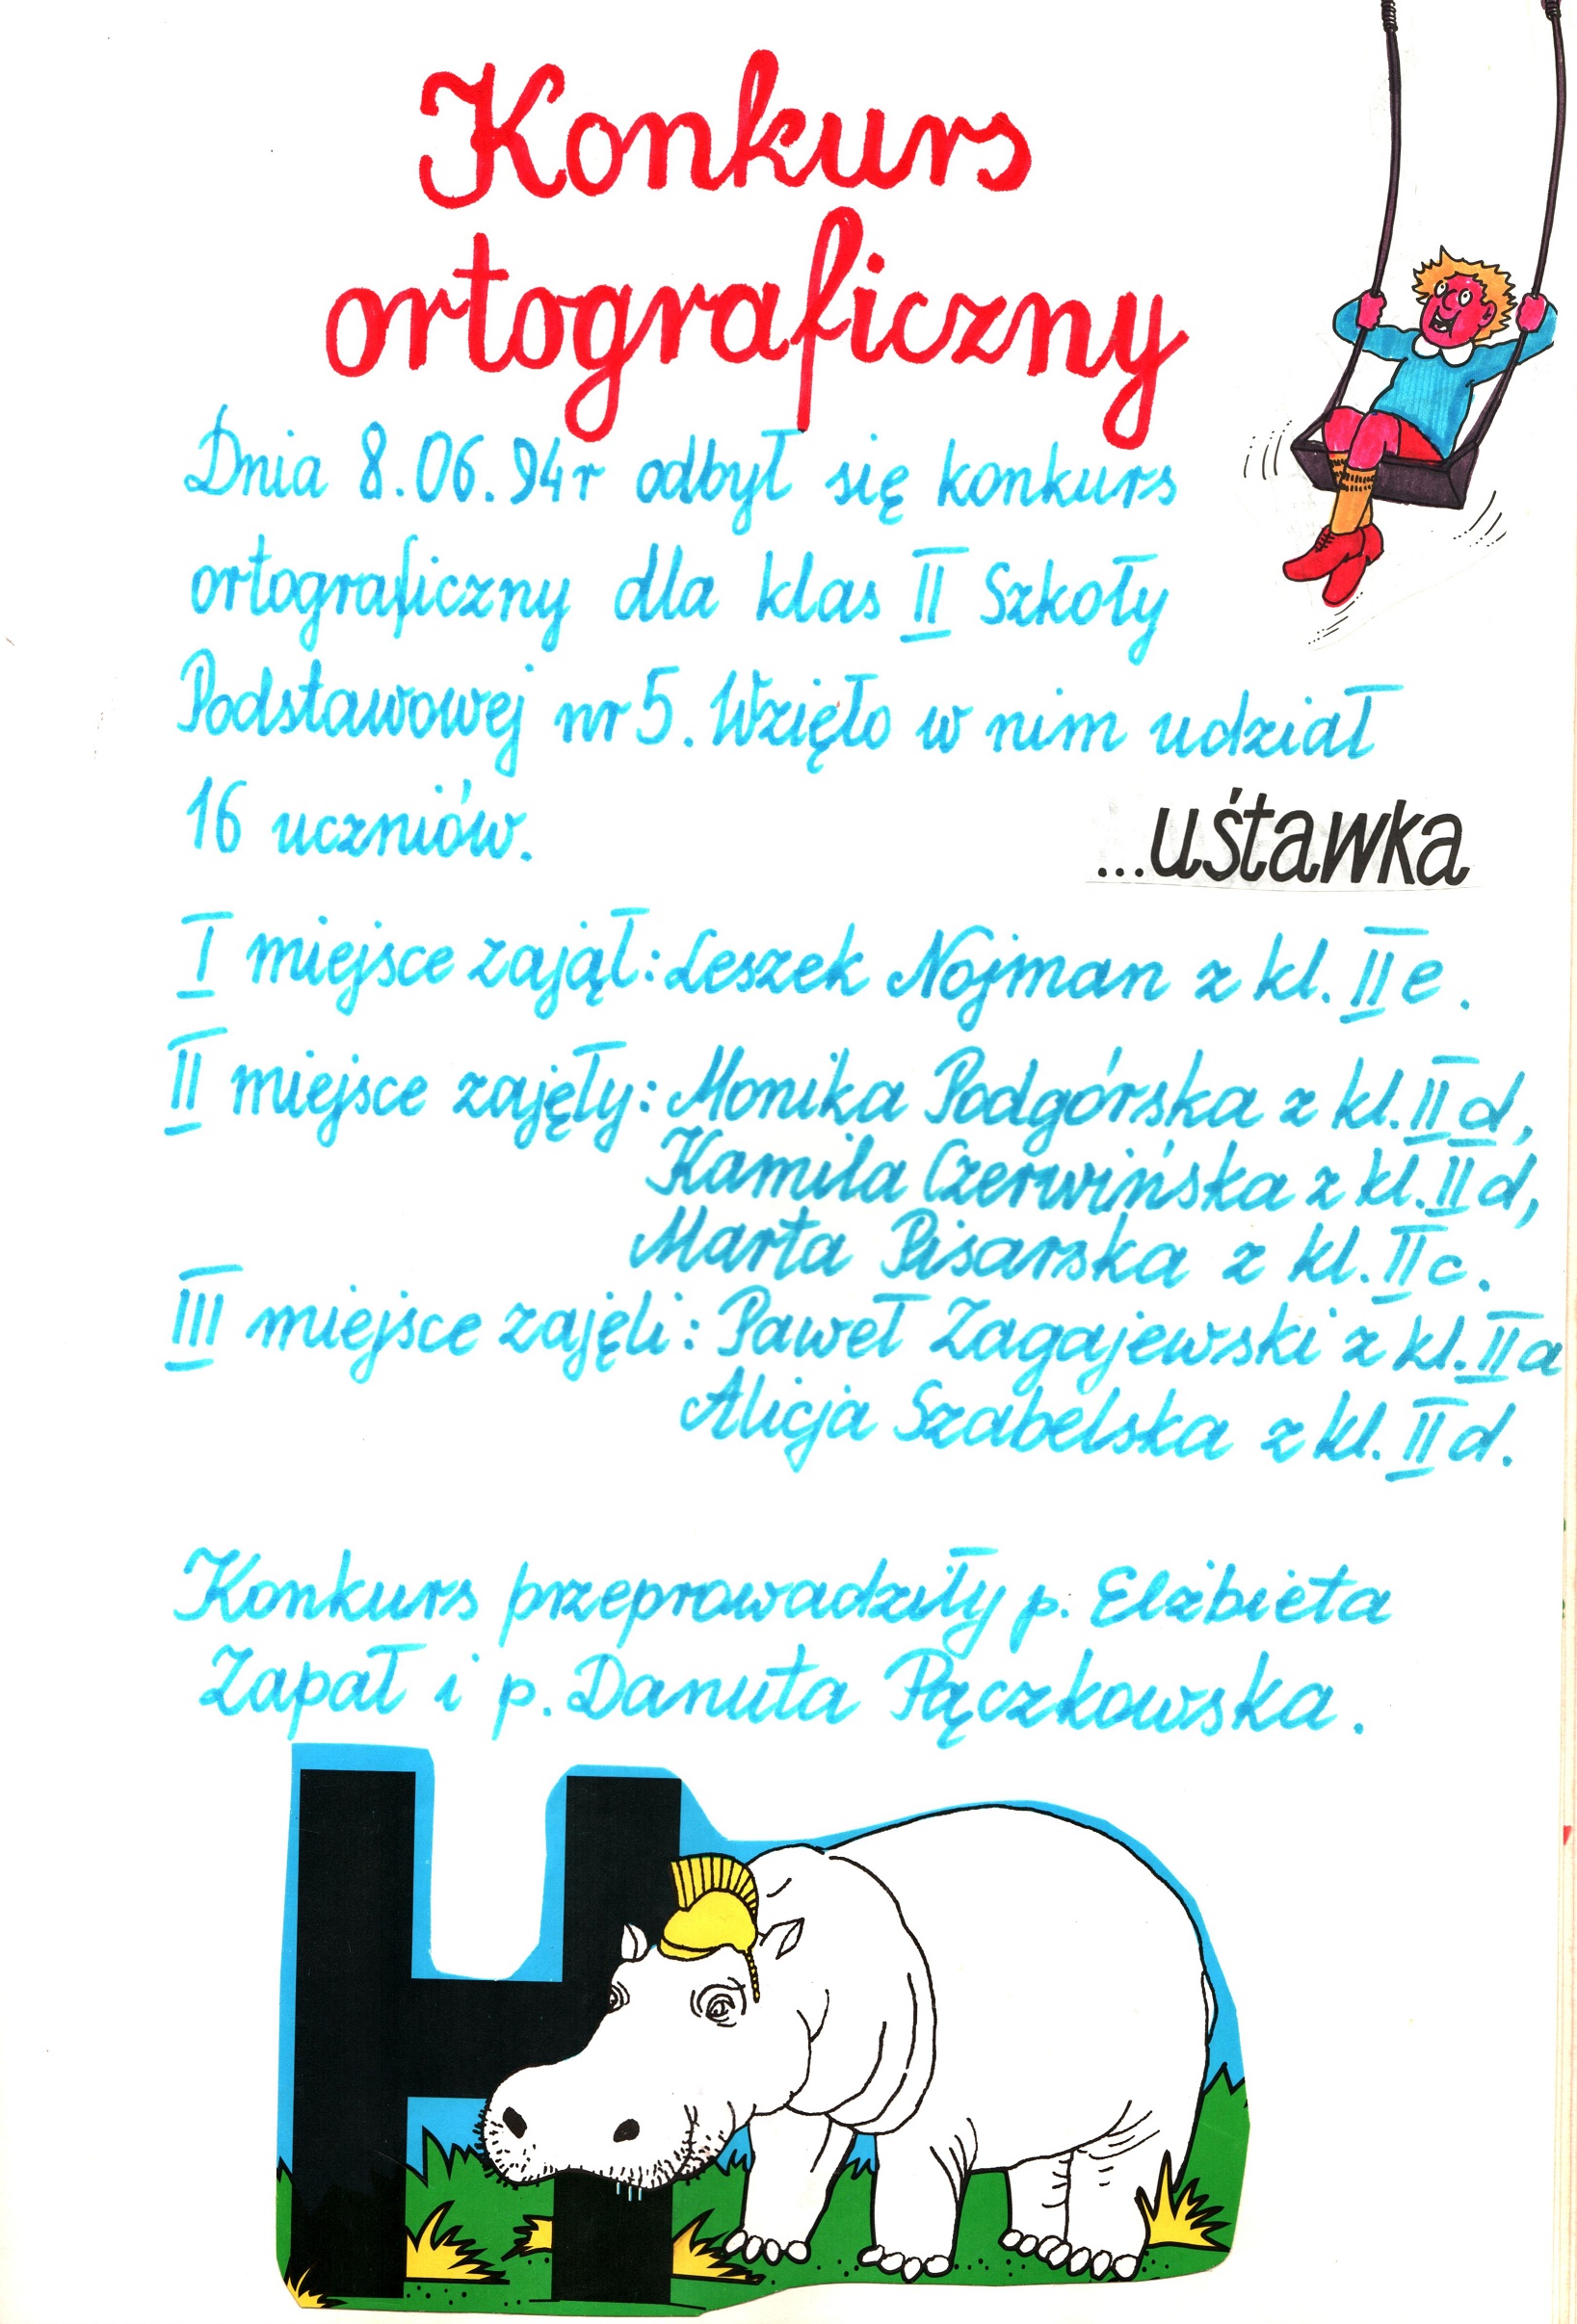 Konkurs
ortograficzny
Dnia 8.06.94r odbył się konkurs
ortograficzny dla klas II Szkoły
Podstawowej nr 5. Wzięło w nim udział
16 uczniów.
...uśtawka
I miejsce zajął: Leszek Nojman z kl. II e.
II miejsce zajęły: Monika Podgórska z kl. II d,
Kamila Czerwińska z kl. II d,
Marta Pisarska z kl. II c.
III miejsce zajęli: Paweł Zagajewski z kl. II a
Alicja Szabelska z kl. II d.
Konkurs przeprowadziły p. Elżbieta
Zapał i p. Danuta Pączkowska.
H